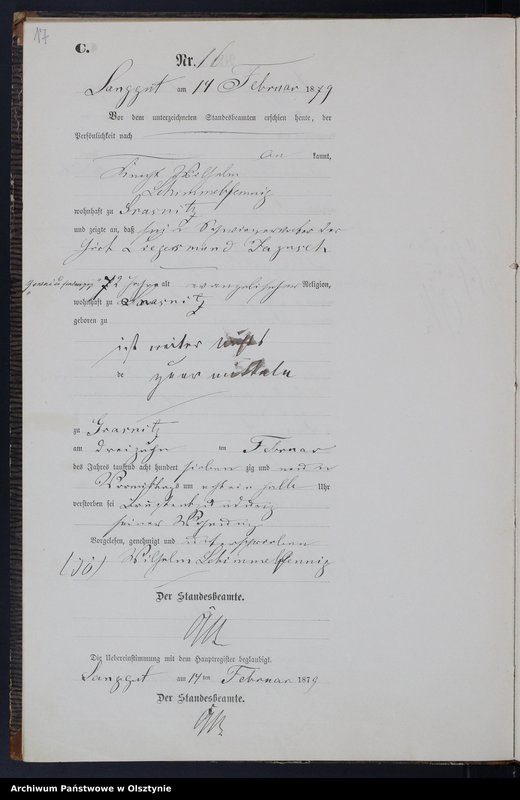 17
C.
Nr. 16
Langgut am 14 Februar 1879
Vor dem unterzeichneten Standesbeamten erschien heute, der
Persönlichkeit nach
kannt,
Knecht Wilhelm
Schimmelpfennig
wohnhaft zu Grasnitz
und zeigte an, daß Schwiegervater der
72 Jahre alt evangelischer Religion,
wohnhaft zu Grasnitz
geboren zu
ist weiter nichts
zu ermitteln
zu Grasnitz
am dreizehn ten Februar
des Jahres tausend acht hundert sieben zig und neun
Vormittags um acht ein halb Uhr
verstorben sei
seiner Wohnung
Vorgelesen, genehmigt und unterschrieben
Wilhelm Schimmelpfennig
Der Standesbeamte.
Die Uebereinstimmung mit dem Hauptregister beglaubigt.
Langgut am 14 ten Februar 1879
Der Standesbeamte.
Archiwum Państwowe w Olsztynie